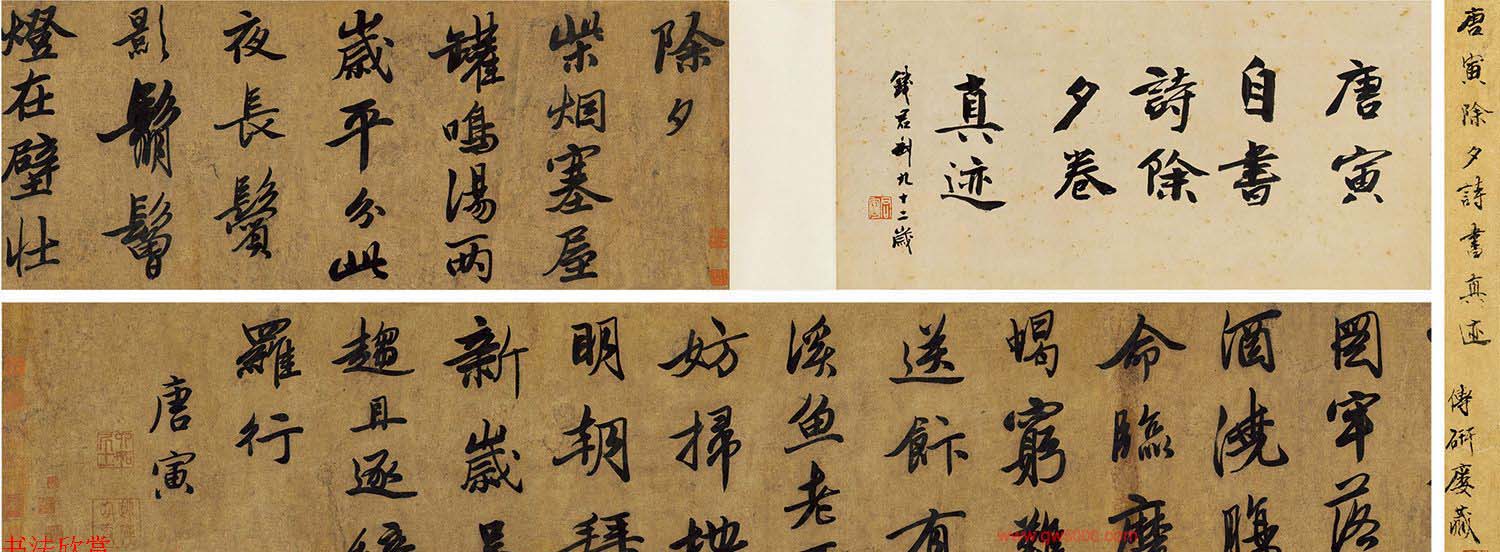 唐寅除夕詩書真迹 傳硏廔藏
唐寅
自書
詩除
夕卷
真迹
錢君匋九十二歲
除夕
柴烟塞屋
罐鳴湯兩
歲平分此
夜長鬢
影鬅鬙
燈在壁壯
圖牢落
酒澆腸
命臨磨
蝎窮難
送飰有
溪魚老不
妨掃地
明朝拜
新歲吴
趨且逐
羅行
唐寅
书法欣赏